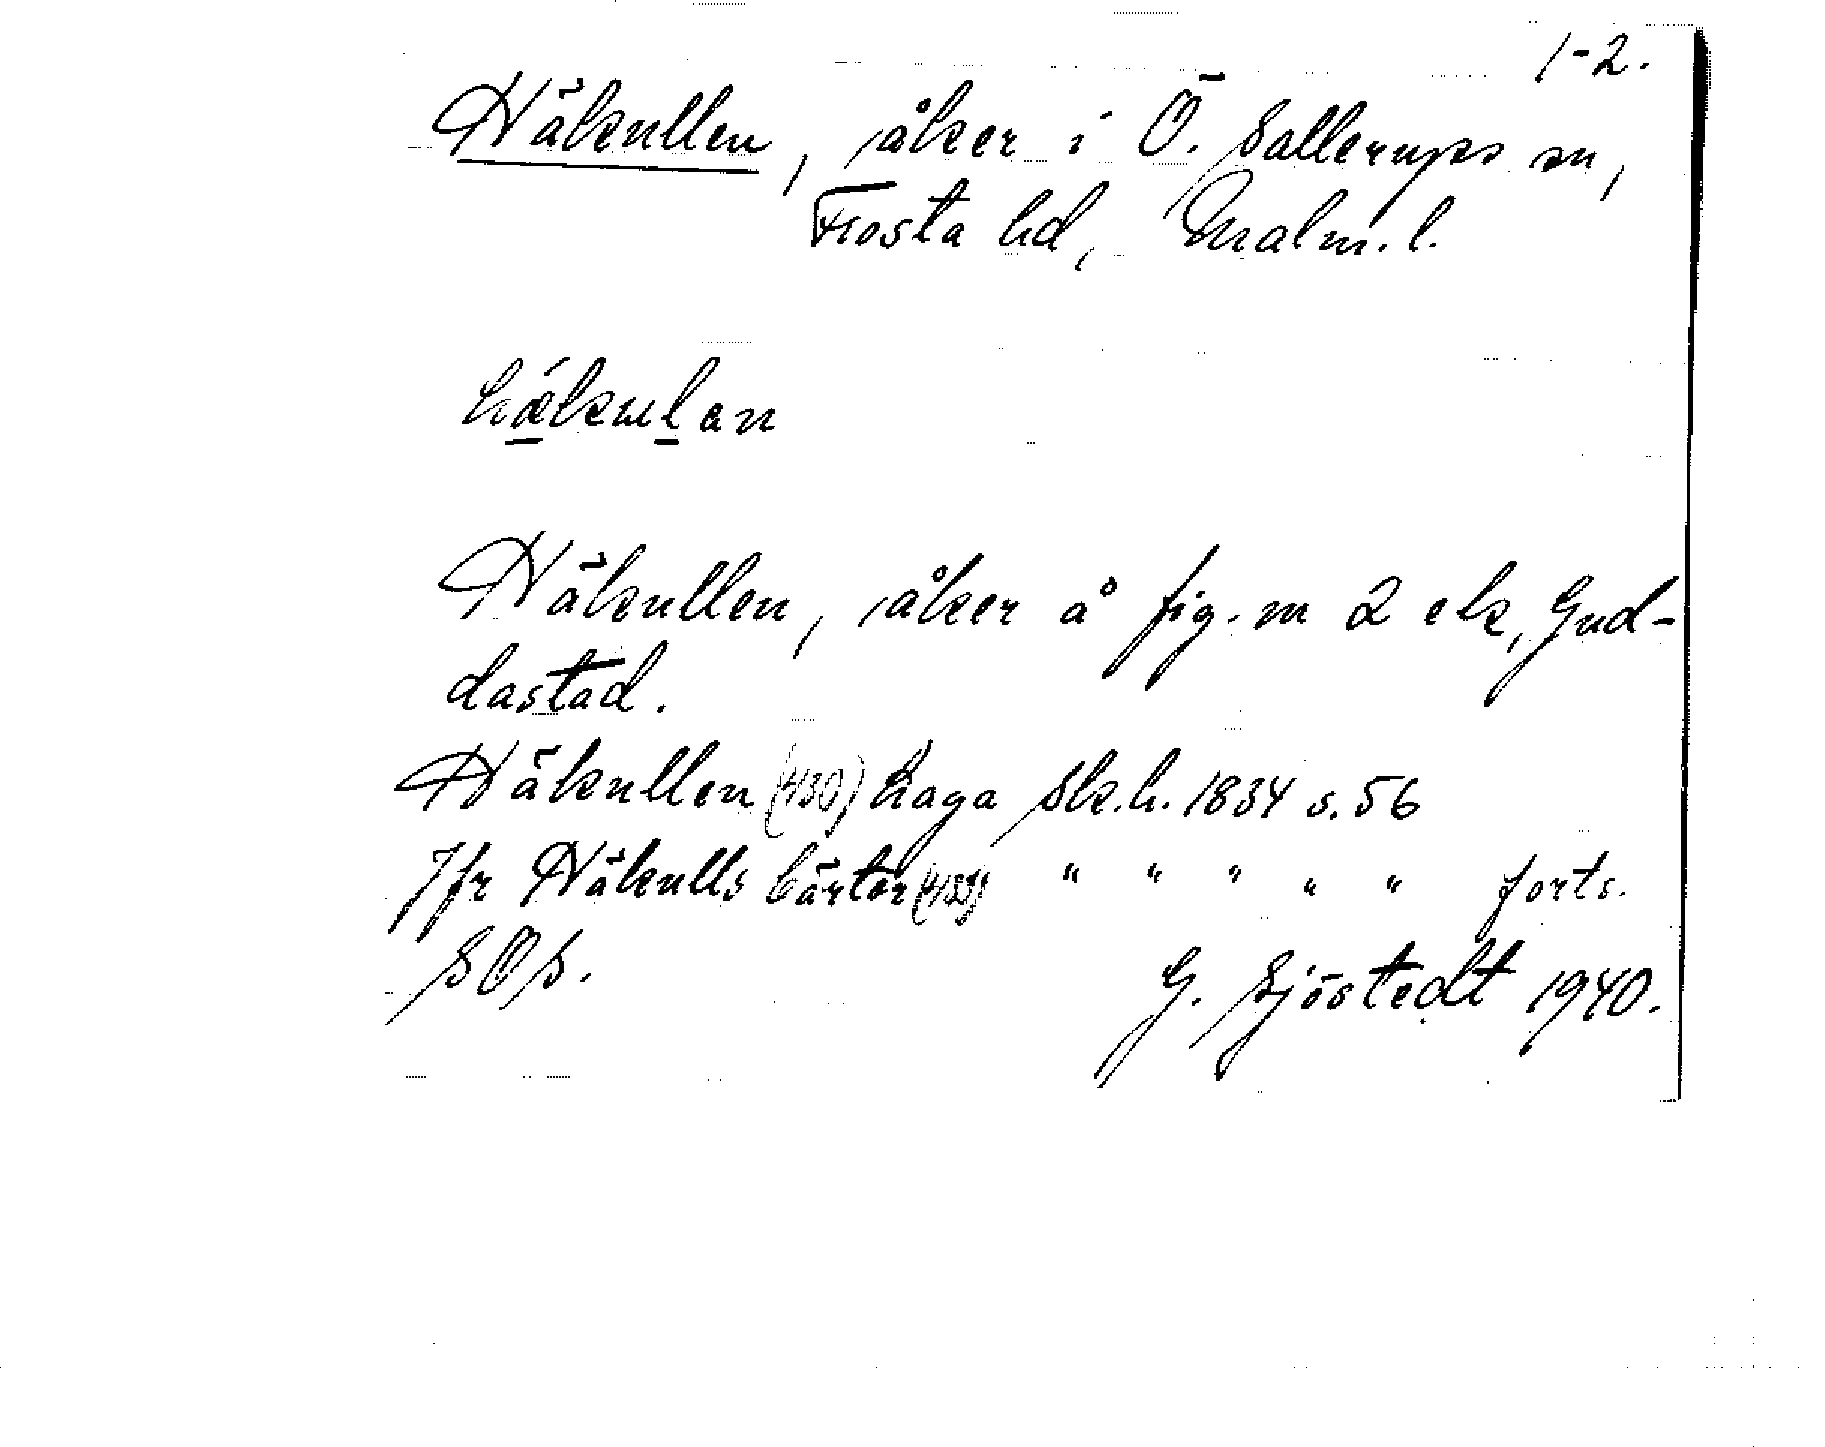 1-2.
Häkullen, åker i Ö. Sallerups sn,
Frosta hd, Malm.l.
hǽkulan
Häkullen, åker å fig. m 2 ek, Gud-
dastad.
Häkullen (430) haga Sk.h. 1834 s. 56
Jfr Häkulls bärter " " " " " forts.
SOS.
G. Sjöstedt 1940.